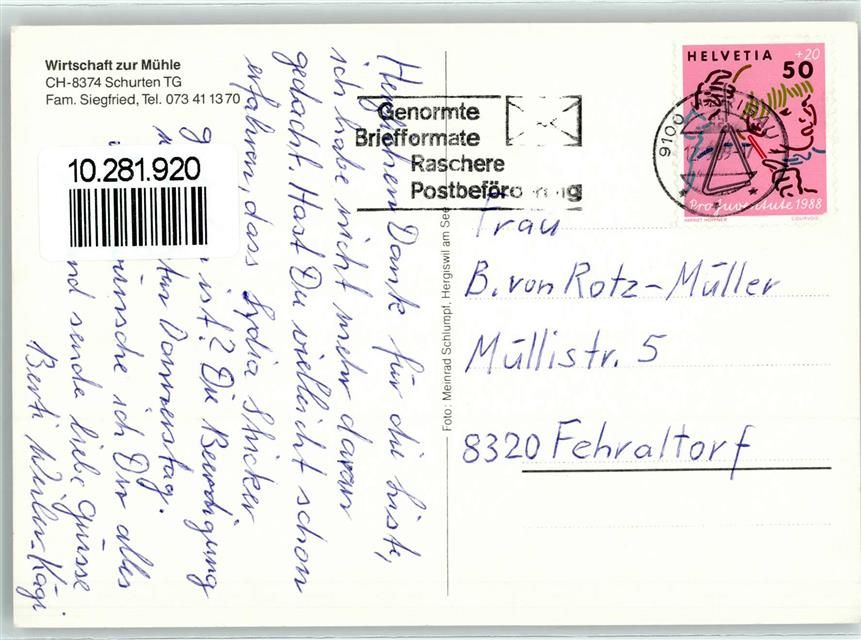 Wirtschaft zur Mühle
CH-8374 Schurten TG
Fam. Siegfried, Tel. 073 41 13 70
10.281.920
Herzlichen Dank für die Liste,
ich habe nicht mehr daran
gedacht. Hast Du vielleicht schon
erfahren, dass Lydia Stricker
ist? Die Beerdigung
Donnerstag.
wünsche ich Dir alles
und sende liebe Grüsse
Berti
Foto: Meinrad Schlumpf, Hergiswil am See
Genormte
Briefformate
Raschere
Postbeförderung
9100
HELVETIA +20
50
Pro Juventute 1988
COURVOISIER
Frau
B. von Rotz-Müller
Müllistr. 5
8320 Fehraltorf